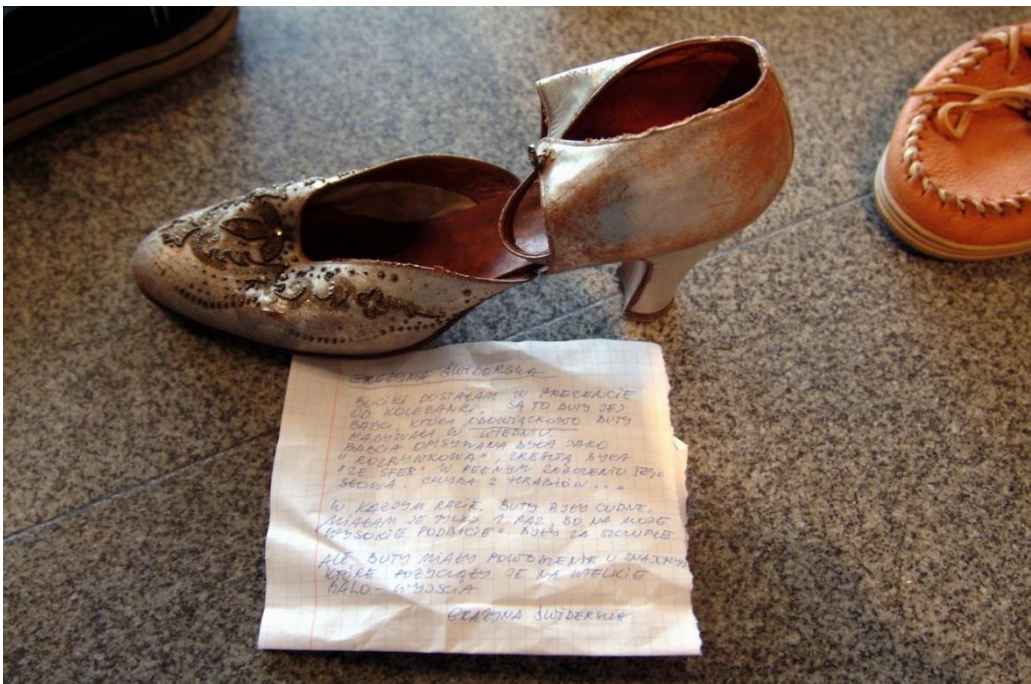 GRAŻYNA ŚWIDERSKA
BUCIKI DOSTAŁAM W PREZENCIE
OD KOLEŻANKI. SĄ TO BUTY JEJ
BABCI, KTÓRA OBOWIĄZKOWO BUTY
NABYWAŁA W WIEDNIU
BABCIA OPISYWANA BYŁA JAKO
"ROZRYWKOWA", ZRESZTĄ BYŁA
"ZE SFER" W PEŁNYM ZNACZENIU TEGO
SŁOWA. CHYBA Z HRABIÓW...
W KAŻDYM RAZIE, BUTY BYŁY CUDNE,
MIAŁAM JE TYLKO 1 RAZ, BO NA MOJE
"WYSOKIE PODBICIE" BYŁY ZA SZCZUPŁE.
ALE, BUTY MIAŁY POWODZENIE U ZNAJOMYCH
KTÓRE POŻYCZAŁY JE NA WIELKIE
BALO-WYJŚCIA
GRAŻYNA ŚWIDERSKA